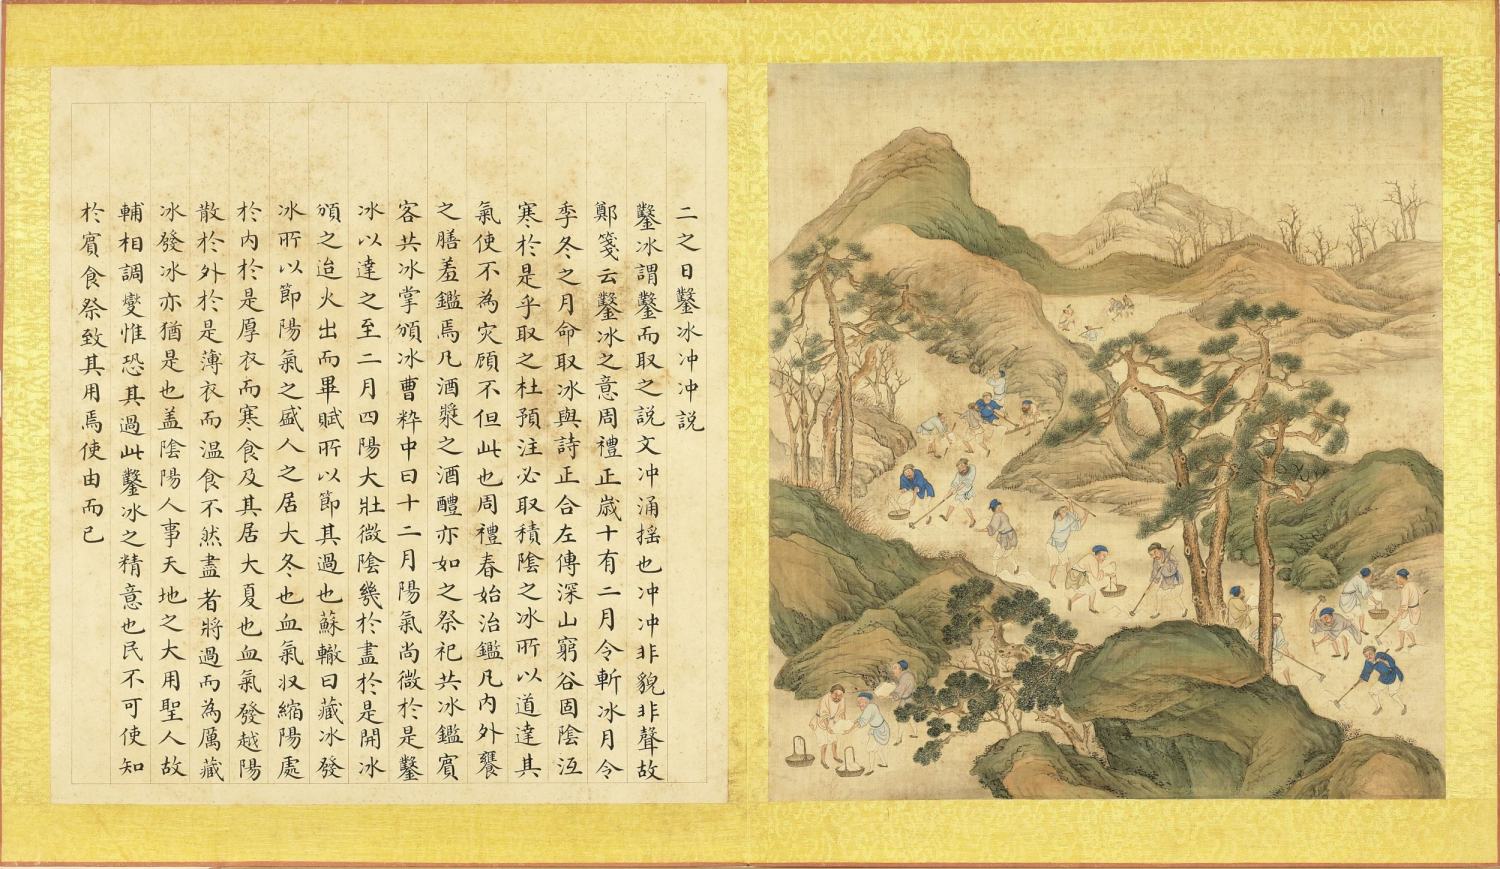 二之日鑿冰冲冲説
鑿冰謂鑿而取之説文冲涌摇也冲冲非貌非聲故
鄭箋云鑿冰之意周禮正歲十有二月令斬冰月令
季冬之月命取冰與詩正合左傳深山窮谷固陰沍
寒於是乎取之杜預注必取積陰之冰所以道達其
氣使不為灾顾不但此也周禮春始治鑑凡内外饔
之膳羞鑑焉凡酒漿之酒醴亦如之祭祀共冰鑑賓
客共冰掌頒冰曹粹中曰十二月陽氣尚微於是鑿
冰以達之至二月四陽大壯微陰幾於盡於是開冰
頒之迨火出而畢賦所以節其過也蘇轍曰藏冰發
冰所以節陽氣之盛人之居大冬也血氣收縮陽處
於内於是厚衣而寒食及其居大夏也血氣發越陽
散於外於是薄衣而温食不然盡者將過而為厲藏
冰發冰亦猶是也盖陰陽人事天地之大用聖人故
輔相調燮惟恐其過此鑿冰之精意也民不可使知
於賓食祭致其用焉使由而已